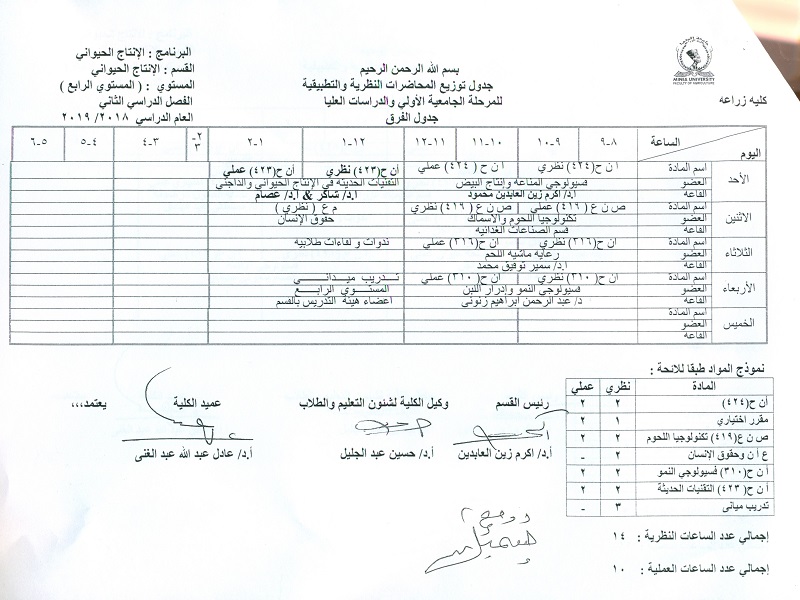 MINIA UNIVERSITY
FACULTY OF AGRICULTURE
كليه زراعه
بسم الله الرحمن الرحيم
جدول توزيع المحاضرات النظرية والتطبيقية
للمرحلة الجامعية الأولي والدراسات العليا
جدول الفرق
البرنامج : الإنتاج الحيواني
القسم : الإنتاج الحيواني
المستوي : ( المستوي الرابع )
الفصل الدراسي الثاني
العام الدراسي ٢٠١٨/ ٢٠١٩
الساعة ٨-٩ ٩-١٠ ١٠-١١ ١١-١٢ ١٢-١ ١-٢ ٢-٣ ٣-٤ ٤-٥ ٥-٦
اليوم
الأحد
اسم المادة أ ن ح(٤٢٤) نظري أ ن ح ( ٤٢٤) عملي أن ح(٤٢٣) نظري أن ح(٤٢٣) عملي
العضو فسيولوجي المناعة وإنتاج البيض التقنيات الحديثة في الإنتاج الحيواني والداجني
القاعة أ.د/ أكرم زين العابدين محمود أ.د/ شاكر & أ.د/ عصام
الاثنين
اسم المادة ص ن ع (٤١٦) عملي ص ن ع (٤١٦) نظري م ع ( نظري )
العضو تكنولوجيا اللحوم والأسماك حقوق الإنسان
القاعة قسم الصناعات الغذائية
الثلاثاء
اسم المادة ان ح(٣١٦) نظري ان ح(٣١٦) عملي ندوات و لقاءات طلابية
العضو رعايه ماشيه اللحم
القاعة أ.د/ سمير توفيق محمد
الأربعاء
اسم المادة ان ح(٣١٠) نظري ان ح(٣١٠) عملي تدريب ميداني
العضو فسيولوجي النمو وإدرار اللبن المستوي الرابع
القاعة د/ عبد الرحمن ابراهيم زنوني اعضاء هيئة التدريس بالقسم
الخميس
اسم المادة
العضو
القاعة
نموذج المواد طبقا للائحة :
المادة نظري عملي
أن ح(٤٢٤) ٢ ٢
مقرر اختياري ١ ٢
ص ن ع(٤١٩) تكنولوجيا اللحوم ٢ ٢
ع أ ن وحقوق الإنسان ٢ -
أ ن ح(٣١٠) فسيولوجي النمو ٢ ٢
أ ن ح( ٤٢٣) التقنيات الحديثة ٢ ٢
تدريب مياني ٣ -
إجمالي عدد الساعات النظرية : ١٤
إجمالي عدد الساعات العملية : ١٠
رئيس القسم
أ.د/ اكرم زين العابدين
وكيل الكلية لشئون التعليم والطلاب
أ.د/ حسين عبد الجليل
يعتمد،،،
عميد الكلية
أ.د/ عادل عبد الله عبد الغنى